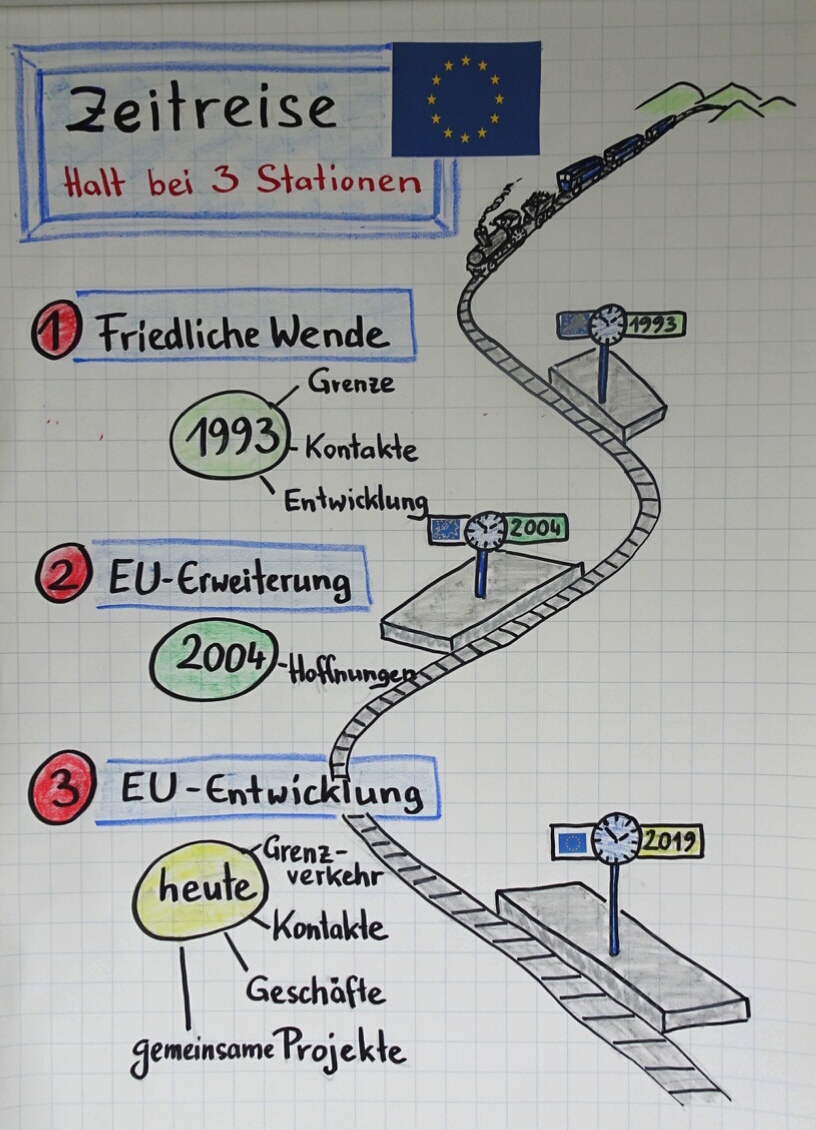 Zeitreise
Halt bei 3 Stationen
1 Friedliche Wende
1993
Grenze
1993
Kontakte
Entwicklung
2004
2 EU-Erweiterung
2004
Hoffnungen
3 EU-Entwicklung
2019
heute
Grenz-
verkehr
Kontakte
Geschäfte
gemeinsame Projekte